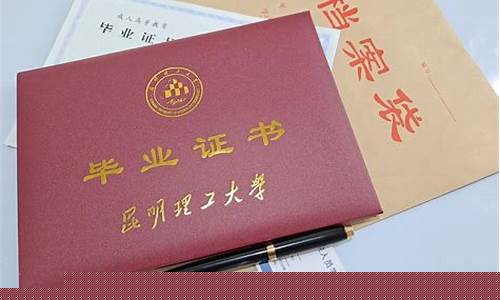 成人高等教育
毕业证书
档案袋
毕业证书
昆明理工大学